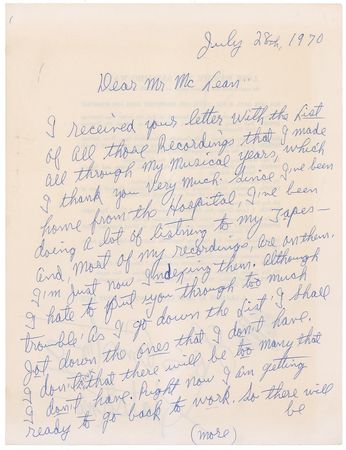 July 28th, 1970
Dear Mr Mc Lean.
I received your letter with the List
of All those Recordings that I made
all through my Musical years, which
I thank you Very Much. Since I've been
home from the Hospital, I've been
doing a lot of listning to my Tapes—
And, Most of my recordings, Are on them.
I'm just now Indexing them. Although
I hate to put you through too much
trouble. As I go down the List, I shall
Jot down the ones that I don't have.
I don't that there will be too many that
I don't have. Right now I am getting
ready to go back to work. So there will
be
(more)